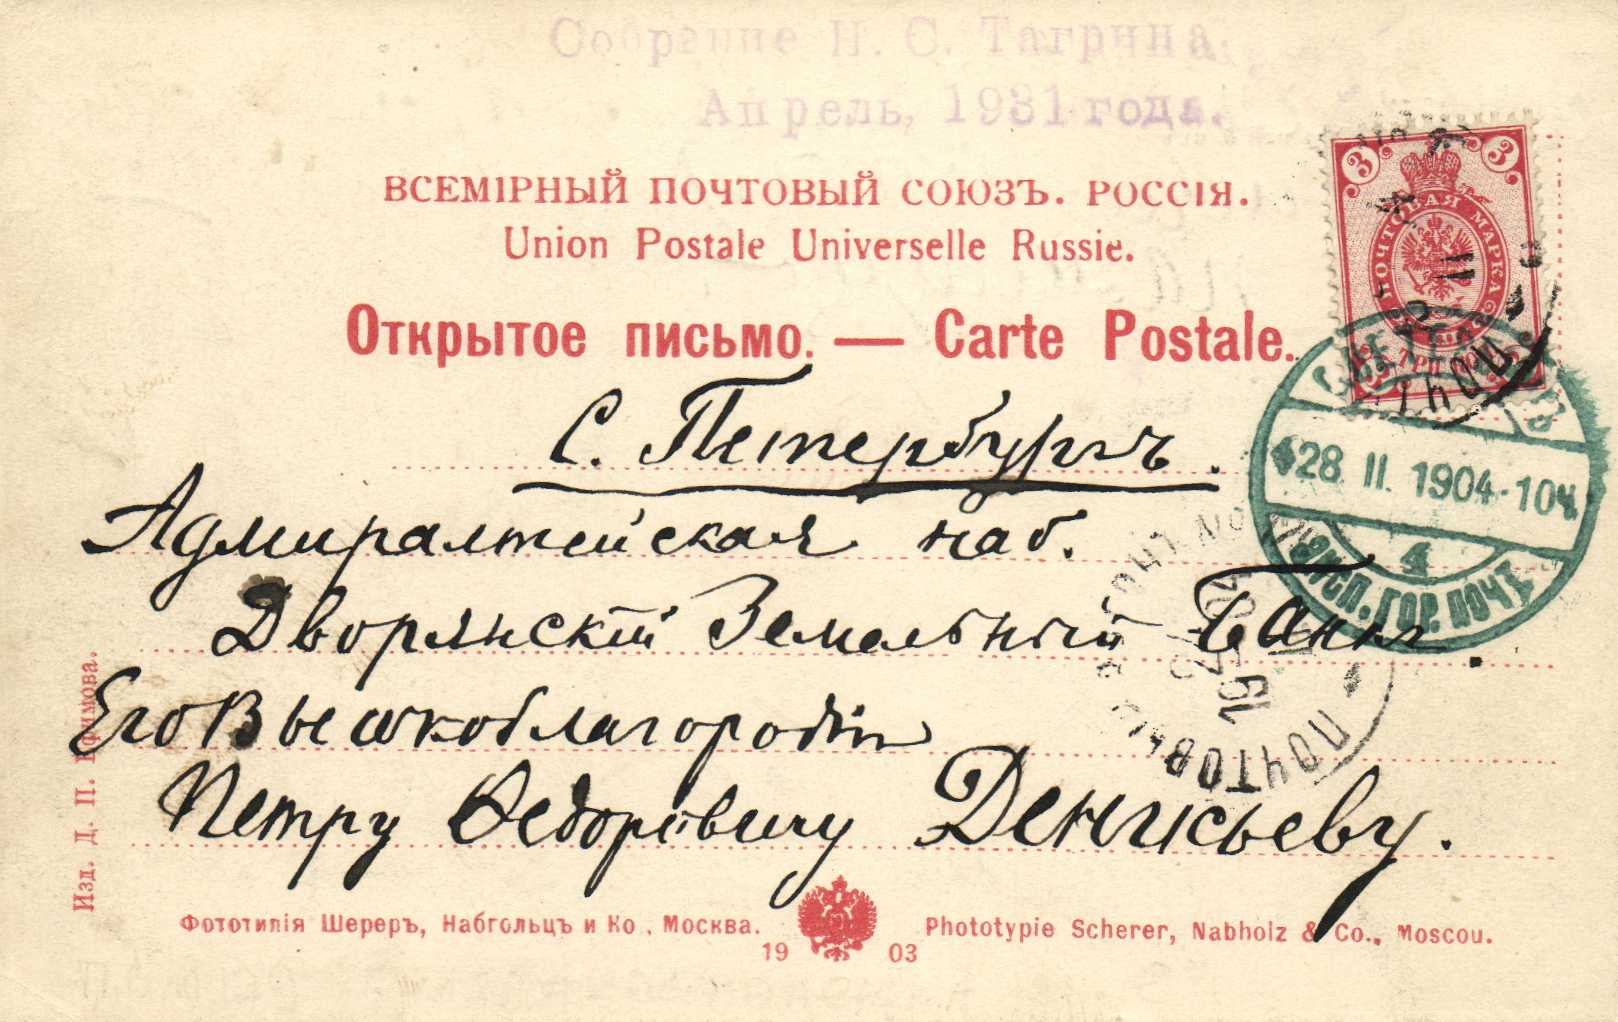 Собрание Н. С. Тагрина.
Апрель, 1931 года.
ВСЕМІРНЫЙ ПОЧТОВЫЙ СОЮЗЪ. РОССІЯ.
Union Postale Universelle Russie.
Открытое письмо. — Carte Postale.
3 3
ПОЧТОВАЯ МАРКА
ТРИ КОП.
28. II. 1904. 10ч.
4 ЭКСП. ГОР. ПОЧТ.
С. Петербургъ.
Адмиралтейская наб.
Дворянскій Земельный Банкъ.
Его Высокоблагородію
Петру Ѳедоровичу Денисьеву.
1904
ПОЧТОВЫЙ
Изд. Д. П. Ефимова.
Фототипія Шереръ, Набгольцъ и Ко, Москва.
1903
Phototypie Scherer, Nabholz & Co., Moscou.